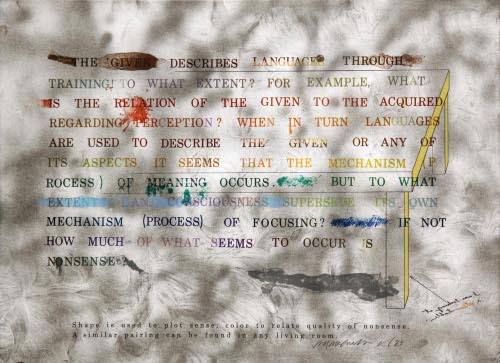 THE 'GIVEN' DESCRIBES LANGUAGE THROUGH
TRAINING! TO WHAT EXTENT? FOR EXAMPLE, WHAT
IS THE RELATION OF THE GIVEN TO THE ACQUIRED
REGARDING PERCEPTION? WHEN IN TURN LANGUAGES
ARE USED TO DESCRIBE THE GIVEN OR ANY OF
ITS ASPECTS IT SEEMS THAT THE MECHANISM P
ROCESS) OF MEANING OCCURS. BUT TO WHAT
EXTENT CAN CONSCIOUSNESS SUPERSEDE ITS OWN
MECHANISM (PROCESS) OF FOCUSING? IF NOT
HOW MUCH OF WHAT SEEMS TO OCCUR IS
NONSENSE?
Shape is used to plot sense, color to relate quality of nonsense.
A similar pairing can be found in any living room.